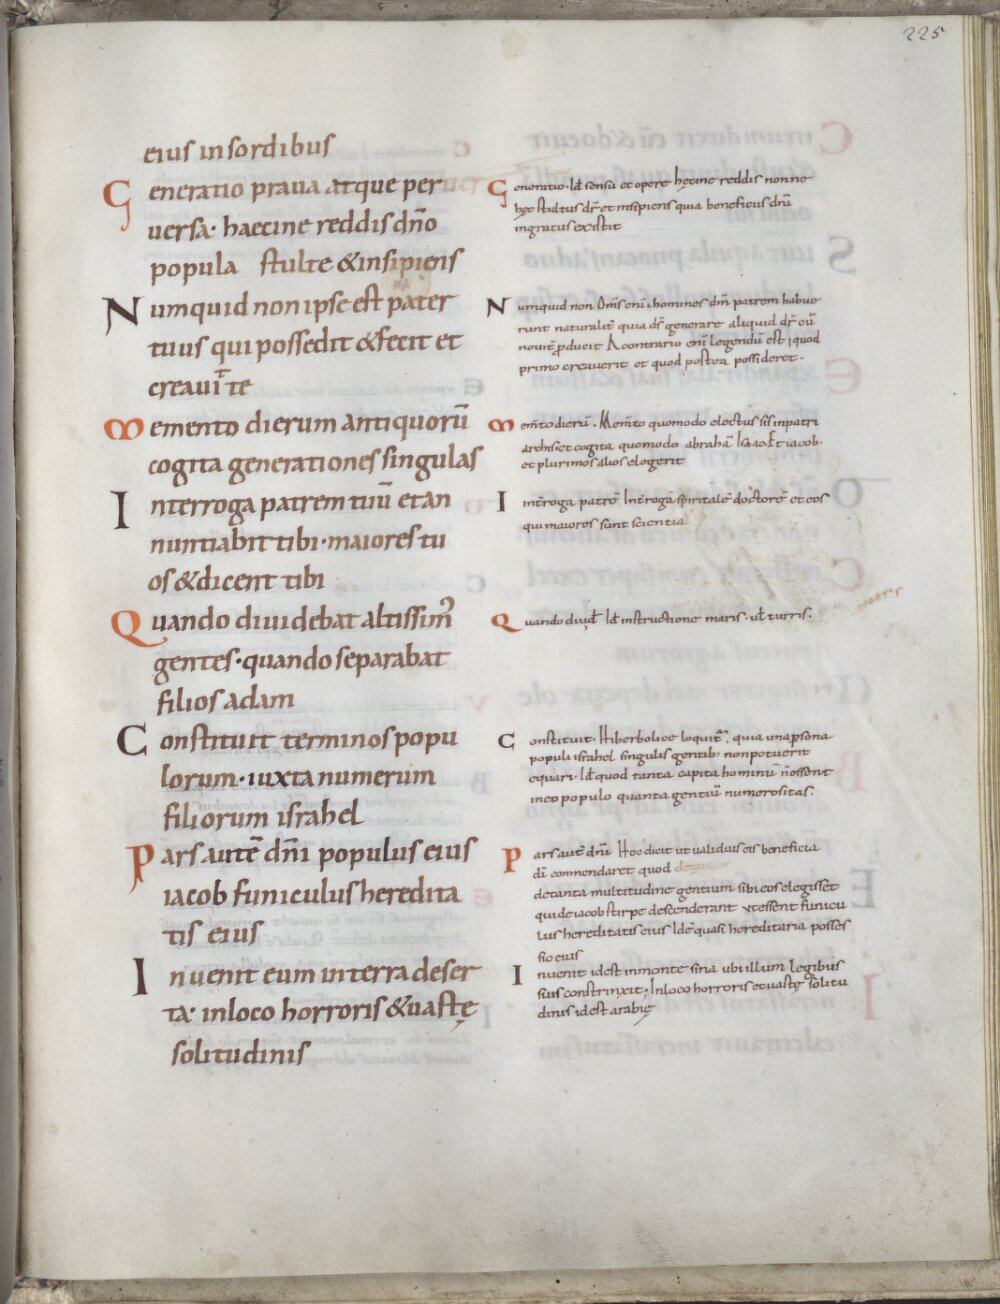 225
eius insordibus
Generatio praua atque per
uersa· haecine reddis dño
popula stulte &insipiens
Numquid non ipse est pater
tuus qui possedit &fecit et
creauit te
Memento dierum antiquorū
cogita generationes singulas
Interroga patrem tuū etan
nuntiabit tibi·maiores tu
os &dicent tibi
Quando diuidebat altissim̄
gentes·quando separabat
filios adam
Constituit terminos popu
lorum·iuxta numerum
filiorum israhel
Pars autē dñi populus eius
iacob funiculus heredita
tis eius
Inuenit eum interra deser
ta· inloco horroris &uastę
solitudinis
Generatio· Id sensu et opere hęcine reddis nonne
hęc stultus dr̄ et insipiens quia beneficus dnū
ingratus existit
Numquid non Om̄s enī homines dm̄ patrem habue
runt naturalit̄ quia ds̄ generare aliquid dr̄ cū
nouit̄ pducit A contrario enī legendū est quod
primo creauerit et quod postea possideret·
Mem̄to dierū· Mem̄to quomodo electus sis inpatri
archis et cogita quomodo abrahā Isaac et iacob·
et plurimos alios elogerit
Int̄roga patrē Int̄rogā spiritalē doctorē et eos
qui maiores sunt scientia
Quando diuid̄ Id instructione maris· ul̄ turris·
Constituit· Hiberbolice loquit̄· quia una psona
populi israhel singulis gentib· non potuerit
equari· Id quod tanta capita hominū n̄ essent
ineo populo quanta gentiū numerositas·
Pars aut̄ dnī Hoc dicit ut ualidius eis beneficia
dī commendaret quod
detanta multitudine gentium sibi eos elegisset
qui de iacob stirpe descenderant et essent funicu
lus hereditatis eius Id e quasi hereditaria posses
sio eius
Inuenit idest inmonte sina ubi illum legibus
suis constrinxit· Inloco horroris et uastę solitu
dinis idest arabię